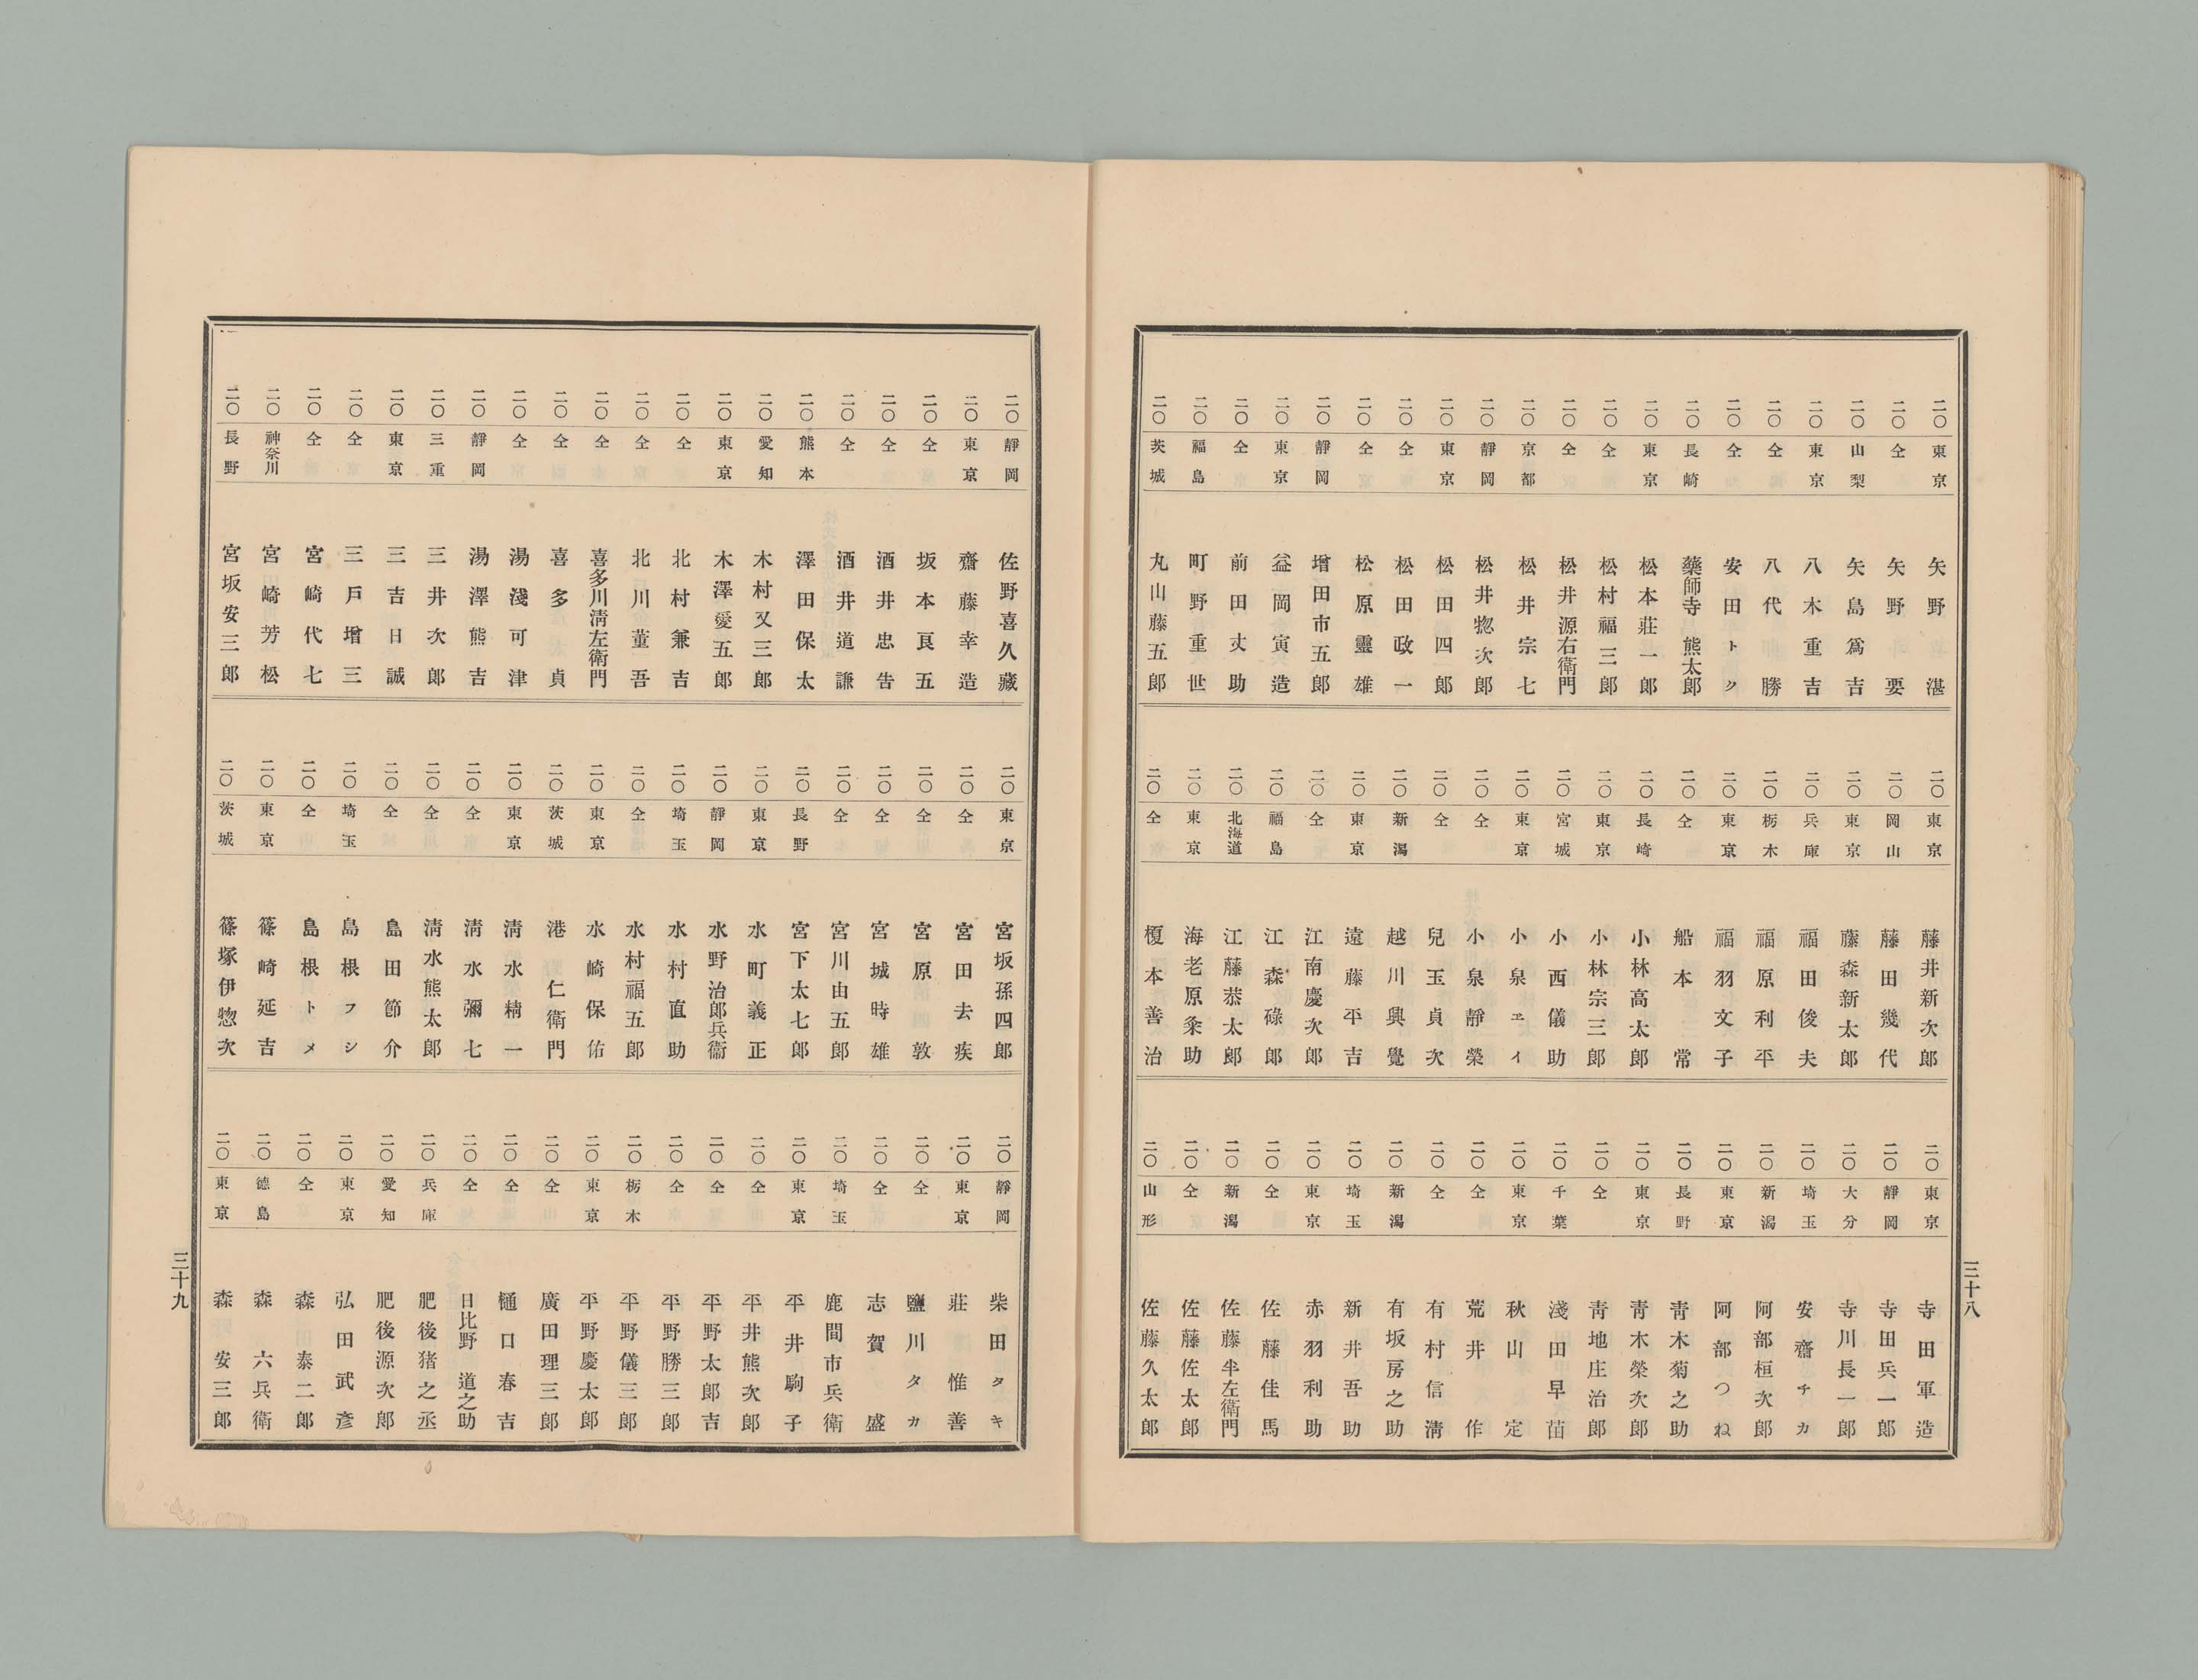 二〇 東京 矢野湛
二〇 仝 矢野要
二〇 山梨 矢島爲吉
二〇 東京 八木重吉
二〇 仝 八代勝
二〇 仝 安田トク
二〇 長崎 藥師寺熊太郎
二〇 東京 松本莊一郎
二〇 仝 松村福三郎
二〇 仝 松井源右衞門
二〇 京都 松井宗七
二〇 靜岡 松井惣次郎
二〇 東京 松田四一郎
二〇 仝 松田政一
二〇 仝 松原靈雄
二〇 靜岡 增田市五郎
二〇 東京 益岡寅造
二〇 仝 前田丈助
二〇 福島 町野重世
二〇 茨城 丸山藤五郎
二〇 東京 藤井新次郎
二〇 岡山 藤田幾代
二〇 東京 藤森新太郎
二〇 兵庫 福田俊夫
二〇 栃木 福原利平
二〇 東京 福羽文子
二〇 仝 船本常
二〇 長崎 小林高太郎
二〇 東京 小林宗三郎
二〇 宮城 小西儀助
二〇 東京 小泉ヱイ
二〇 仝 小泉靜榮
二〇 仝 兒玉貞次
二〇 新潟 越川興覺
二〇 東京 遠藤平吉
二〇 仝 江南慶次郎
二〇 福島 江森碌郎
二〇 北海道 江藤恭太郎
二〇 東京 海老原粂助
二〇 仝 榎本善治
二〇 東京 寺田軍造
二〇 靜岡 寺田兵一郎
二〇 大分 寺川長一郎
二〇 埼玉 安齋チカ
二〇 新潟 阿部桓次郎
二〇 東京 阿部つね
二〇 長野 靑木菊之助
二〇 東京 靑木榮次郎
二〇 仝 靑地庄治郎
二〇 千葉 淺田早苗
二〇 東京 秋山定
二〇 仝 荒井作
二〇 仝 有村信淸
二〇 新潟 有坂房之助
二〇 埼玉 新井吾助
二〇 東京 赤羽利助
二〇 仝 佐藤佳馬
二〇 新潟 佐藤半左衞門
二〇 仝 佐藤佐太郎
二〇 山形 佐藤久太郎
三十八
二〇 靜岡 佐野喜久藏
二〇 東京 齋藤幸造
二〇 仝 坂本良五
二〇 仝 酒井忠告
二〇 仝 酒井道謙
二〇 熊本 澤田保太
二〇 愛知 木村又三郎
二〇 東京 木澤愛五郎
二〇 仝 北村兼吉
二〇 仝 北川董吾
二〇 仝 喜多川淸左衞門
二〇 仝 喜多貞
二〇 仝 湯淺可津
二〇 靜岡 湯澤熊吉
二〇 三重 三井次郎
二〇 東京 三吉日誠
二〇 仝 三戶增三
二〇 仝 宮崎代七
二〇 神奈川 宮崎芳松
二〇 長野 宮坂安三郎
二〇 東京 宮坂孫四郎
二〇 仝 宮田去疾
二〇 仝 宮原敦
二〇 仝 宮城時雄
二〇 仝 宮川由五郎
二〇 長野 宮下太七郎
二〇 東京 水町義正
二〇 靜岡 水野治郎兵衞
二〇 埼玉 水村直助
二〇 仝 水村福五郎
二〇 東京 水崎保佑
二〇 茨城 港仁衞門
二〇 東京 淸水精一
二〇 仝 淸水彌七
二〇 仝 淸水熊太郎
二〇 仝 島田節介
二〇 埼玉 島根フシ
二〇 仝 島根トメ
二〇 東京 篠崎延吉
二〇 茨城 篠塚伊惣次
二〇 靜岡 柴田タキ
二〇 東京 莊惟善
二〇 仝 鹽川タカ
二〇 仝 志賀盛
二〇 埼玉 鹿間市兵衞
二〇 東京 平井駒子
二〇 仝 平井熊次郎
二〇 仝 平野太郎吉
二〇 仝 平野勝三郎
二〇 栃木 平野儀三郎
二〇 東京 平野慶太郎
二〇 仝 廣田理三郎
二〇 仝 樋口春吉
二〇 仝 日比野道之助
二〇 兵庫 肥後猪之丞
二〇 愛知 肥後源次郎
二〇 東京 弘田武彥
二〇 仝 森泰二郎
二〇 德島 森六兵衞
二〇 東京 森安三郎
三十九